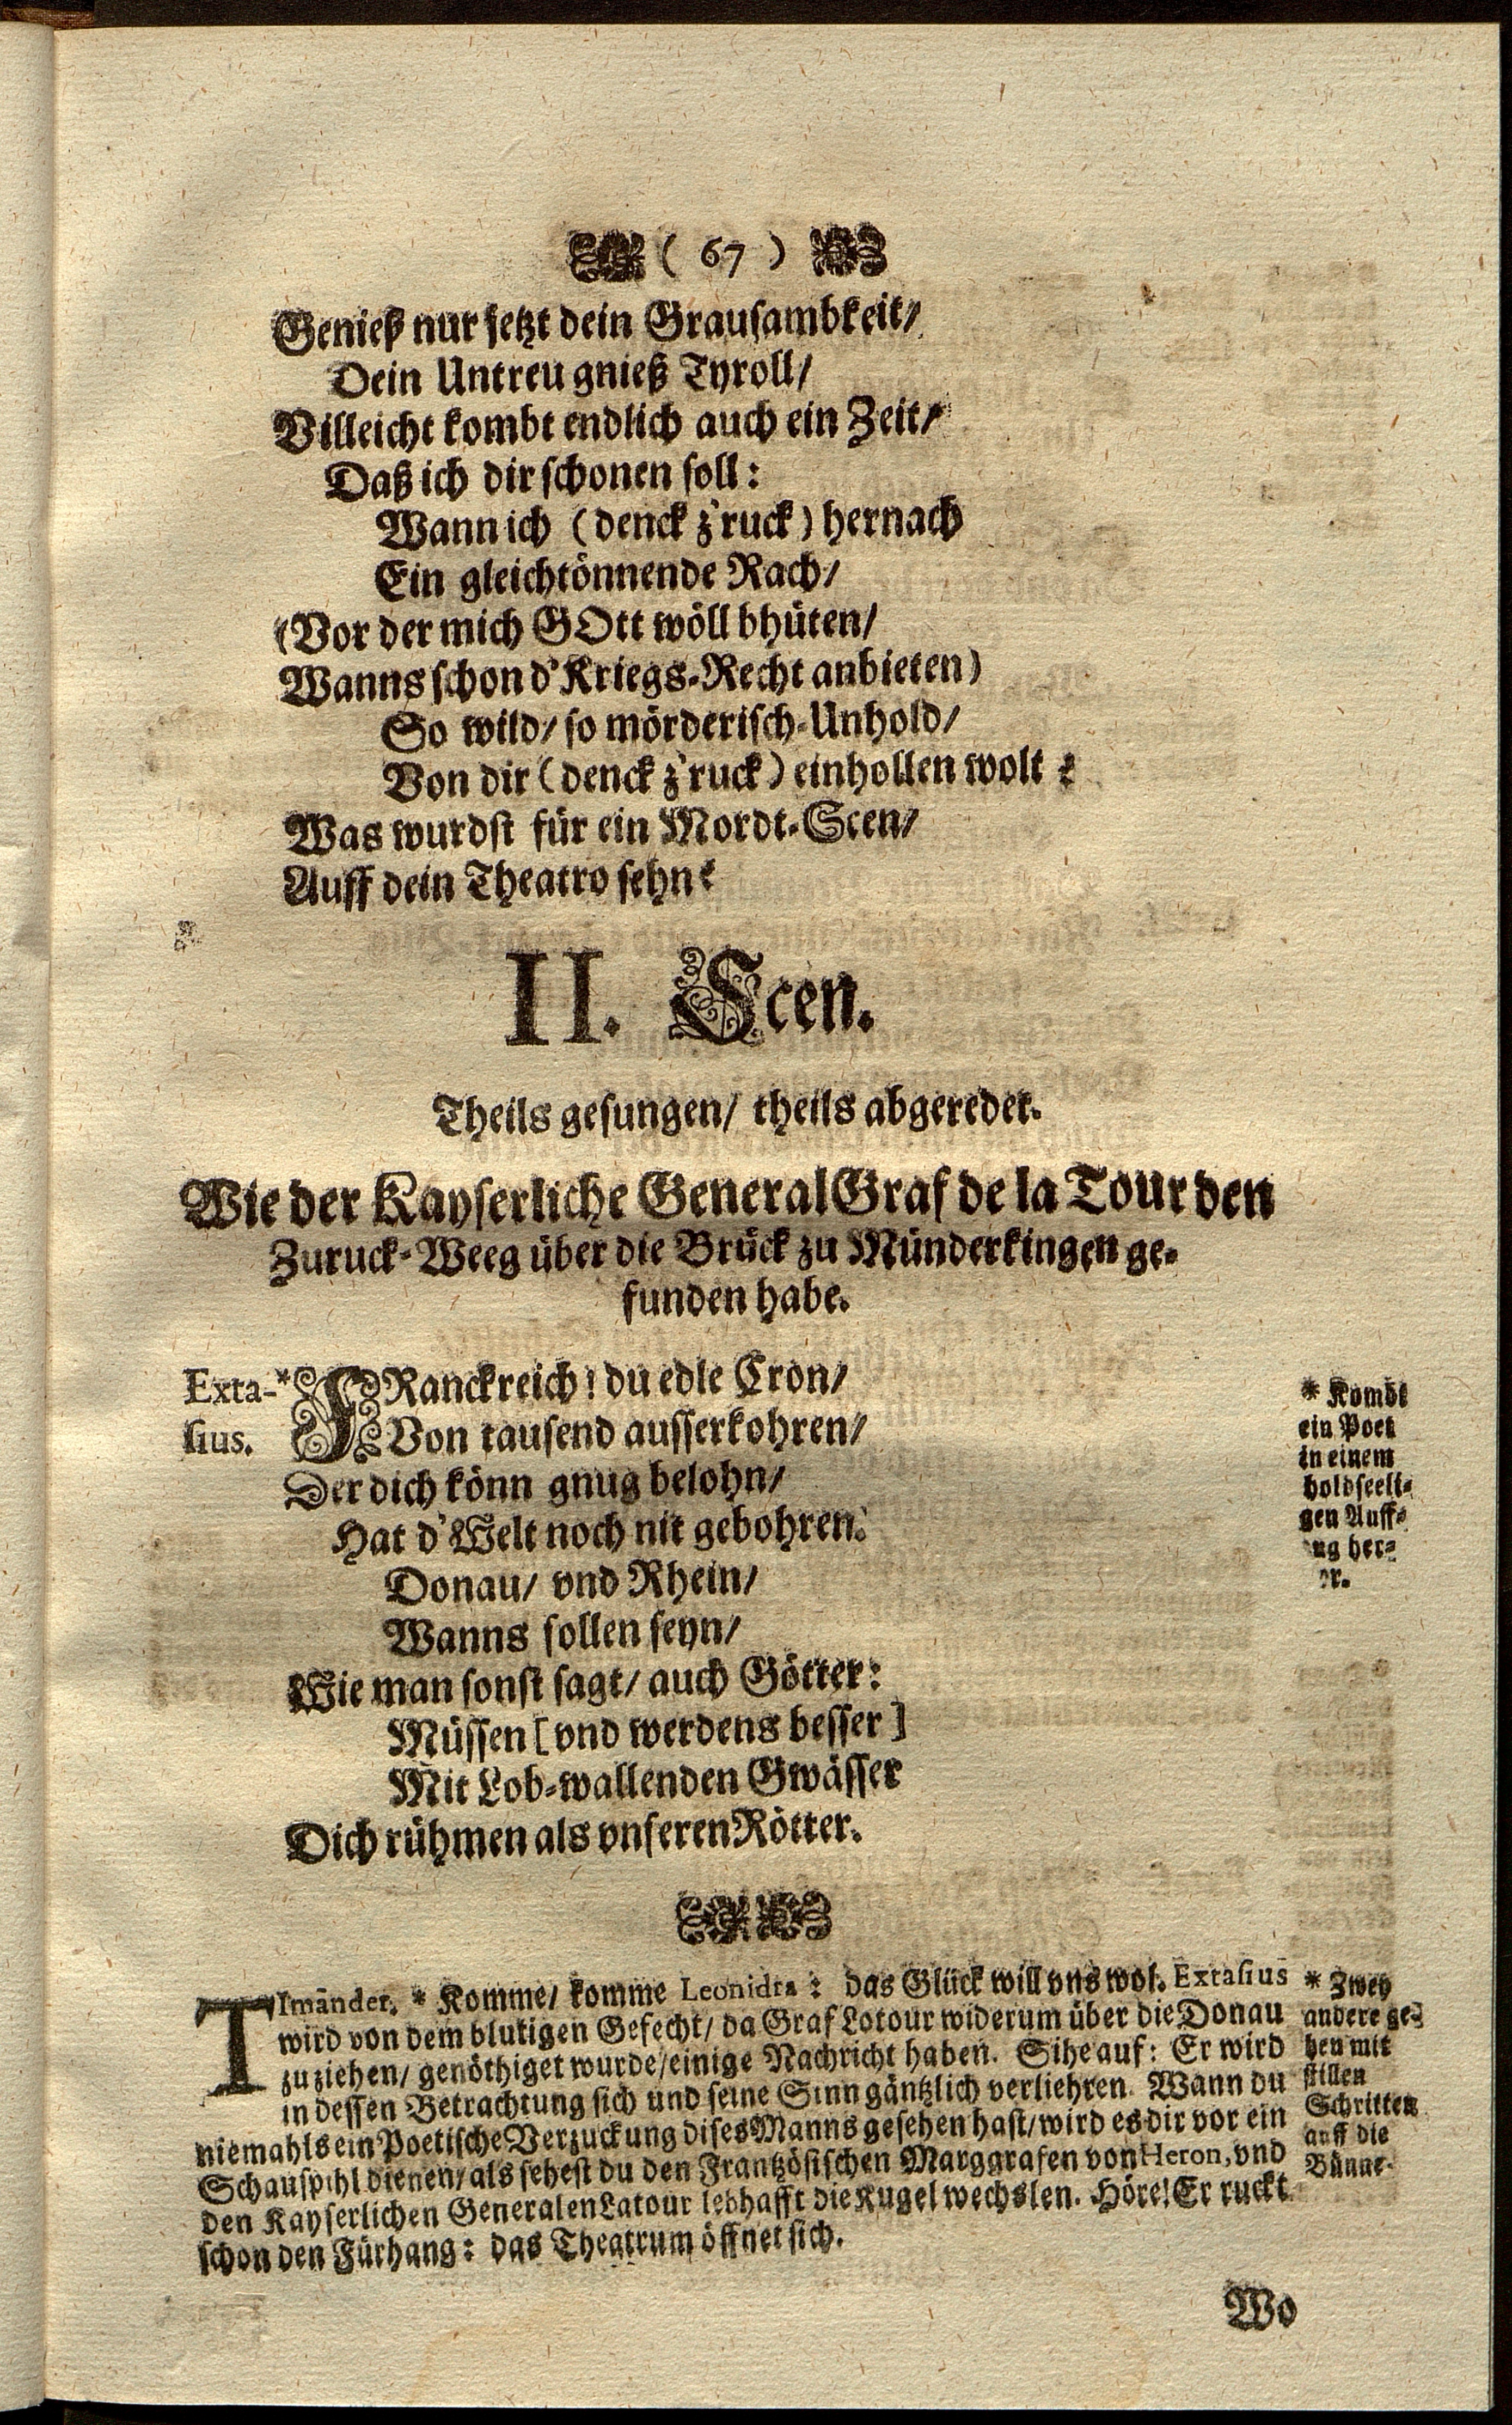 ( 67 )
Genieß nur jetzt dein Grausambkeit/
Dein Untreu gnieß Tyroll/
Villeicht kombt endlich auch ein Zeit/
Daß ich dir schonen soll:
Wann ich (denck z'ruck) hernach
Ein gleichtönnende Rach/
(Vor der mich GOtt wöll bhüten/
Wanns schon d'Kriegs-Recht anbieten)
So wild/ so mörderisch-Unhold/
Von dir (denck z'ruck) einhollen wolt?
Was wurdst für ein Mordt-Scen/
Auff dein Theatro sehn?
II. Scen.
Theils gesungen/ theils abgeredet.
Wie der Kayserliche General Graf de la Tour den
Zuruck-Weeg über die Brück zu Münderkingen ge-
funden habe.
Exta-
sius.
* FRanckreich! du edle Cron/
Von tausend ausserkohren/
Der dich könn gnug belohn/
Hat d'Welt noch nit gebohren.
Donau/ vnd Rhein/
Wanns sollen seyn/
Wie man sonst sagt/ auch Götter:
Müssen [vnd werdens besser]
Mit Lob-wallenden Gwässer
Dich rühmen als vnseren Rötter.
* Kombt
ein Poet
in einem
holdseeli-
gen Auff-
ug her-
r.
TImänder. * Komme/ komme Leonidta: das Glück will vns wol. Extasius
wird von dem blutigen Gefecht/ da Graf Lotour widerum über die Donau
zu ziehen/ genöthiget wurde/ einige Nachricht haben. Sihe auf: Er wird
in dessen Betrachtung sich und seine Sinn gäntzlich verliehren. Wann du
niemahls ein Poetische Verzuckung dises Manns gesehen hast/ wird es dir vor ein
Schauspihl dienen/ als sehest du den Frantzösischen Marggrafen von Heron, vnd
den Kayserlichen Generalen Latour lebhafft die Kugel wechslen. Höre! Er ruckt
schon den Fürhang: das Theatrum öffnet sich.
* Zwey
andere ge-
hen mit
stillen
Schritten
auff die
Bünne.
Wo